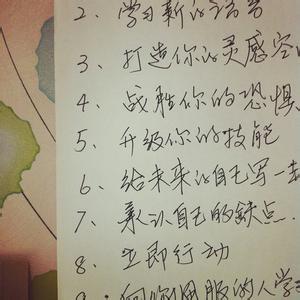 2、学习新的语言
3、打造你的灵感空
4、战胜你的恐惧
5、升级你的技能
6、给未来的自己写一封
7、承认自己的缺点.
8、立即行动
9、向你佩服的人学